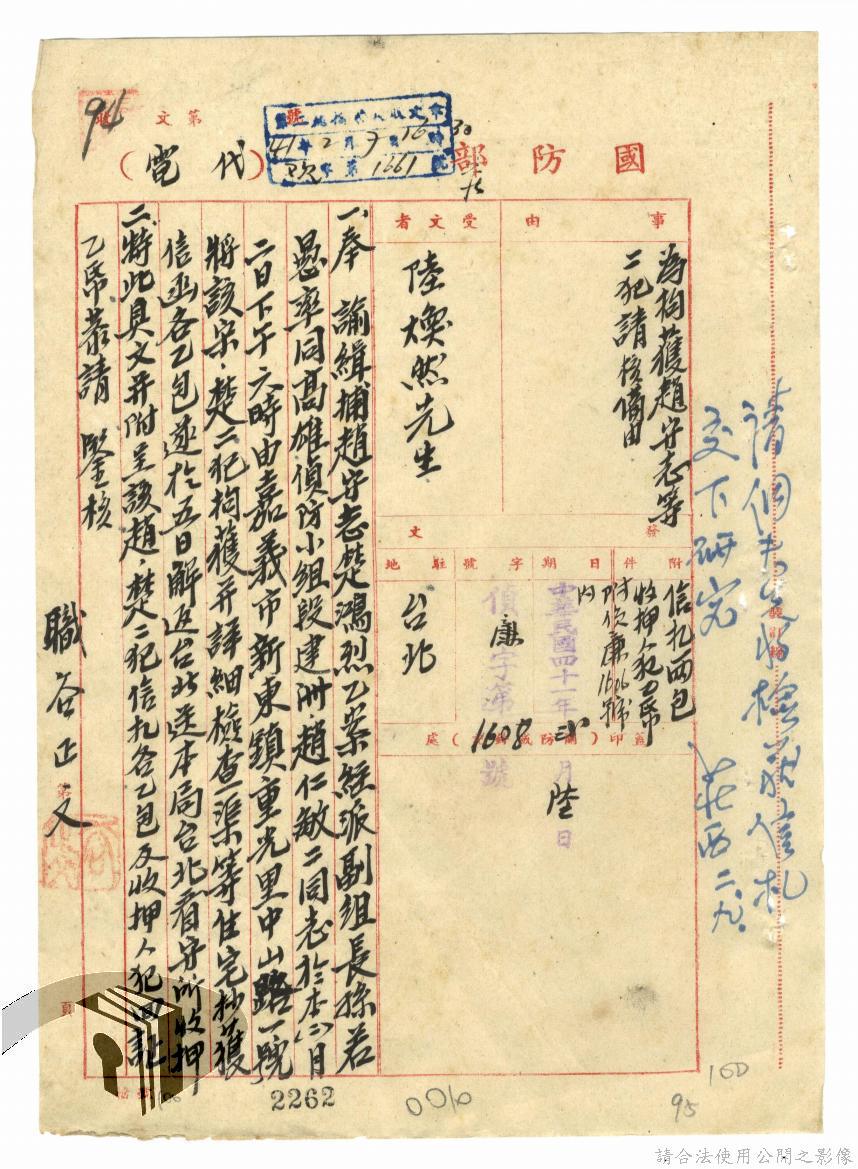 94
第 文 號
國防部(代電)
41年2月7日16時30
字第1661號
事由
為拘獲趙守志等
二犯請核備由
受文者
陸煥然先生
發文
附件
信札兩包
收押人犯回証
附偵廉1606號
內
日期
中華民國四十一年 二月陸日
字號
偵廉字第1608號
駐地
台北
一、奉 諭緝捕趙守志楚鴻烈乙案經派副組長孫若
愚率同高雄偵防小組段建洲、趙仁敏二同志於本(二)月
二日下午六時由嘉義市新東鎮重光里中山路一號
將該宋、楚二犯拘獲并詳細檢查渠等住宅抄獲
信函各乙包遂於五日解返台北送本局台北看守所收押
二、特此具文并附呈該趙、楚二犯信札各乙包及收押人犯回証
乙帋恭請 鑒核
職谷正文
請
交下研究
二.九.
第
頁
2262
0010
95
160
請合法使用公開之影像